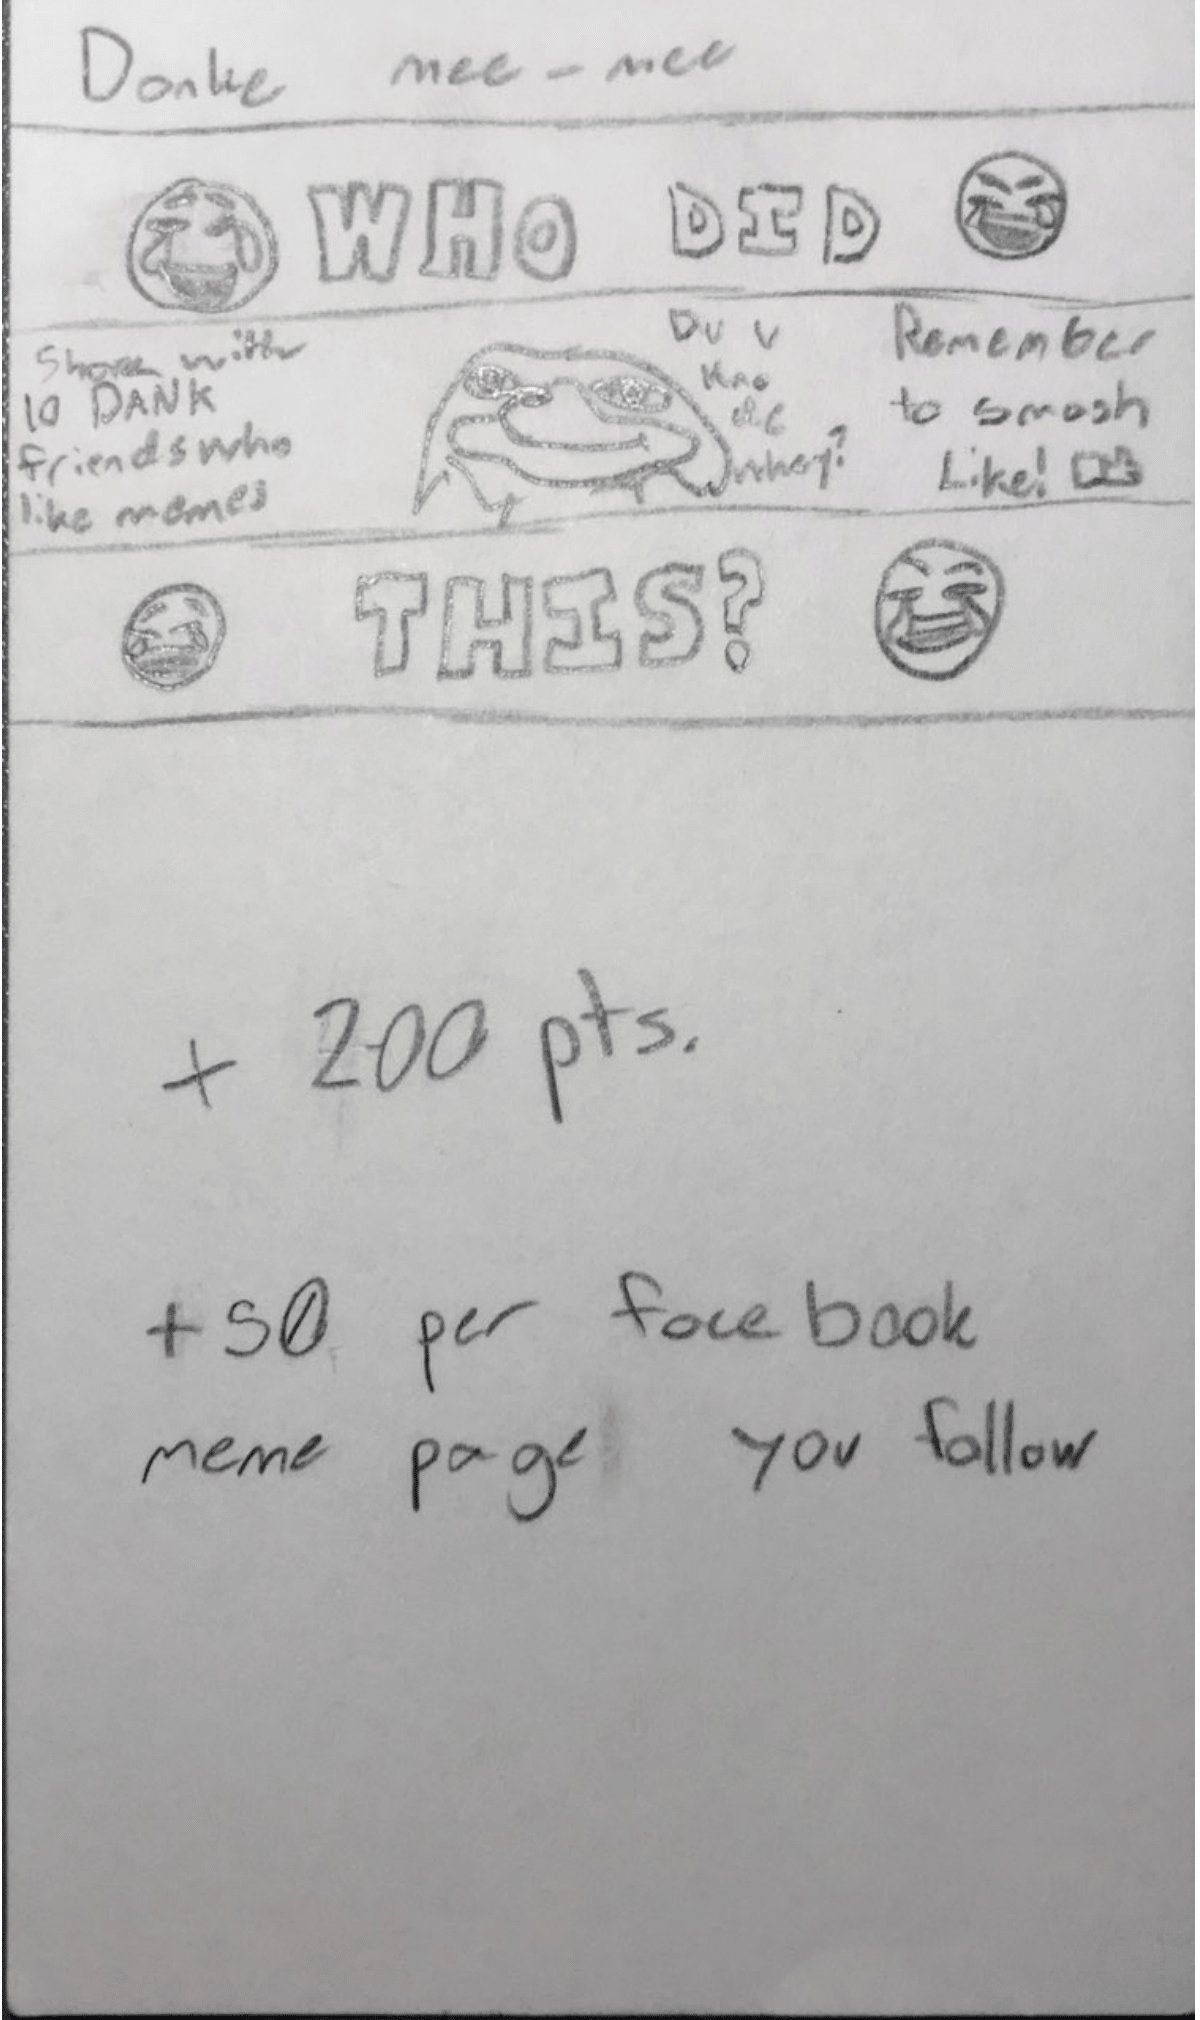 Danke mee-mee
😂 WHO DID 😆
Share with
10 DANK
friends who
like memes
Du u
kno
de
whey?
Remember
to smash
Like! 👍
😂 THIS? 😂
+ 200 pts.
+50 per facebook
meme page you follow